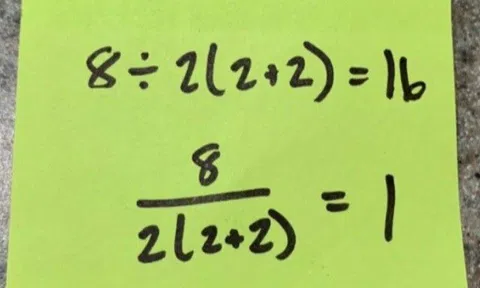 8÷2(2+2)=16
8
2(2+2) = 1